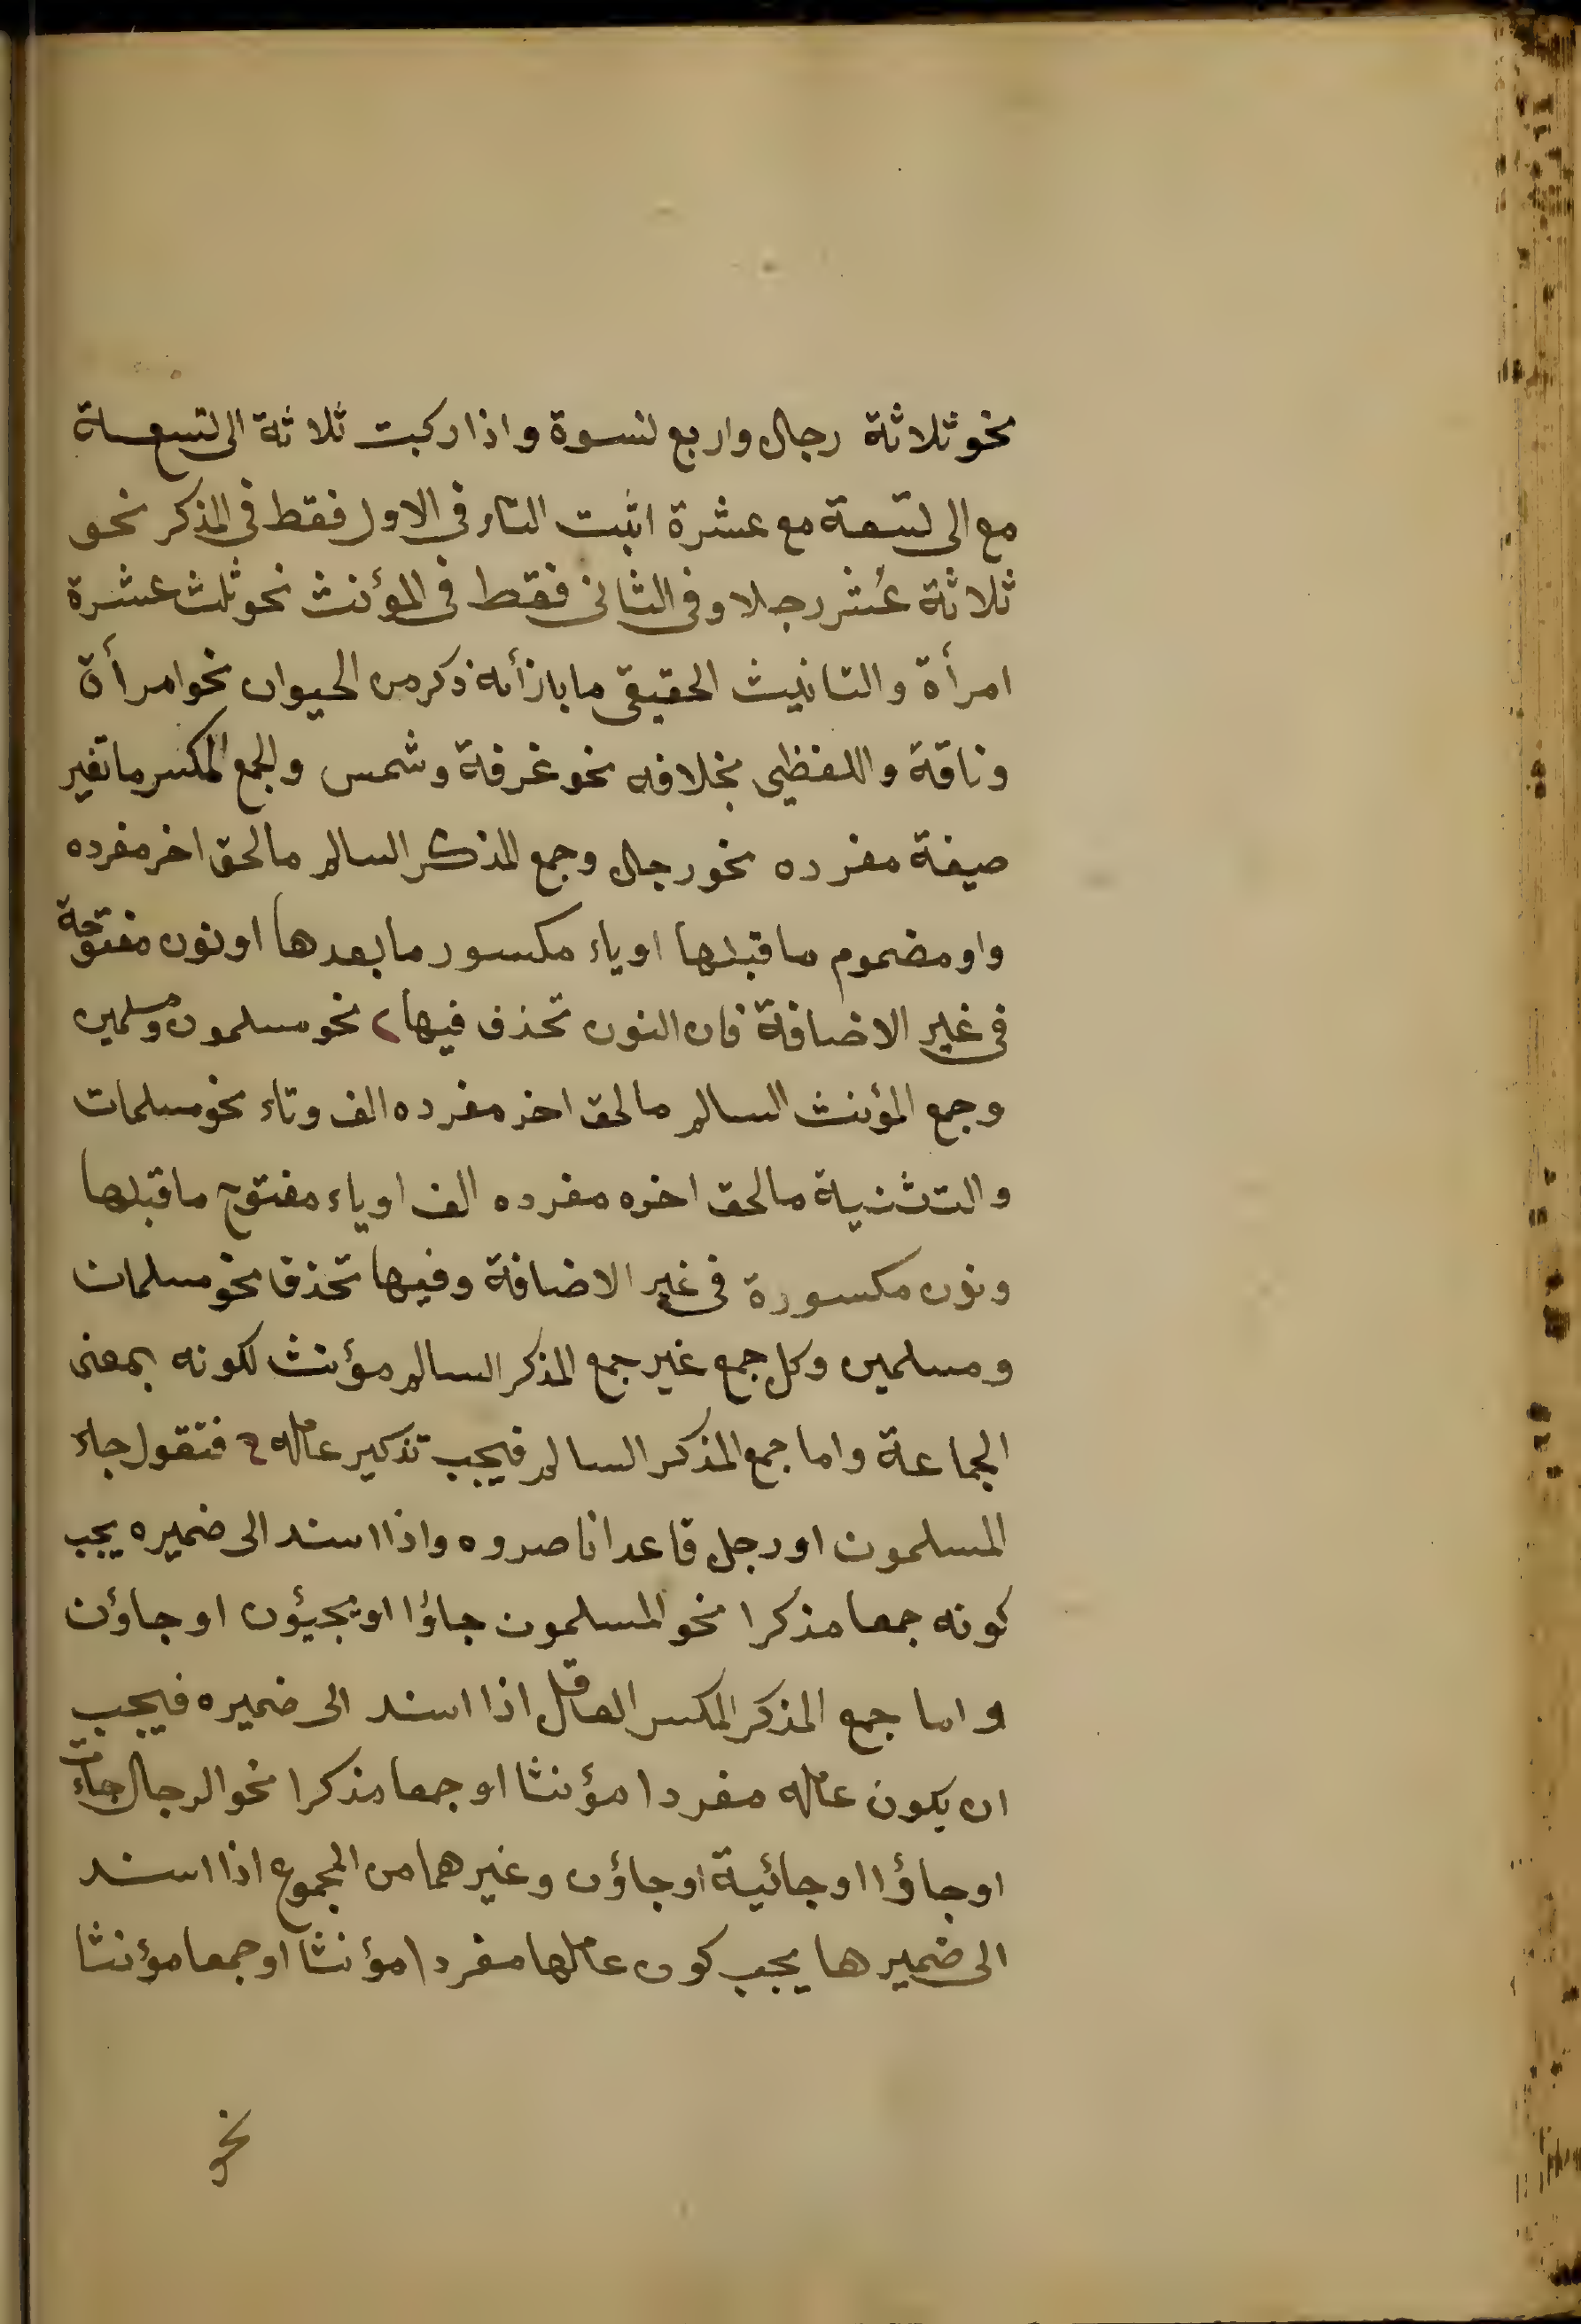 نحو ثلاثة رجال واربع نسوة واذا ركبت ثلاثة الى تسعة
مع الى تسعة مع عشرة اثبت التاء فى الاول فقط فى المذكر نحو
ثلاثة عشر رجلا وفى الثانى فقط فى المؤنث نحو ثلث عشرة
امرأة والتانيث الحقيقى ما بازأنه ذكر من الحيوان نحو امرأة
وناقة واللفظى بخلافه نحو غرفة وشمس والجمع المكسر ما تغير
صيغة مفرده نحو رجال وجمع المذكر السالم ما لحق اخر مفرده
واو مضموم ما قبلها او ياء مكسور ما بعدها او نون مفتوحة
فى غير الاضافة فان النون تحذف فيها نحو مسلمون ومسلمين
وجمع المؤنث السالم ما لحق اخر مفرده الف وتاء نحو مسلمات
والتثنية ما لحق اخره مفرده الف او ياء مفتوح ما قبلها
ونون مكسورة فى غير الاضافة وفيها تحذف نحو مسلمان
ومسلمين وكل جمع غير جمع المذكر السالم مؤنث لكونه بمعنى
الجماعة واما جمع المذكر السالم فيجب تذكير عامله فتقول جاء
المسلمون او رجل قاعد اناصروه واذا اسند الى ضميره يجب
كونه جمعا مذكرا نحو المسلمون جاؤا او يجيؤن او جاؤن
واما جمع المذكر المكسر العاقل اذا اسند الى ضميره فيجب
ان يكون عامله مفردا مؤنثا او جمعا مذكرا نحو الرجال جاءت
او جاؤا او جائية او جاؤن وغيرهما من المجموع اذا اسند
الى ضميرها يجب كون عاملها مفردا مؤنثا او جمعا مؤنثا
نحو